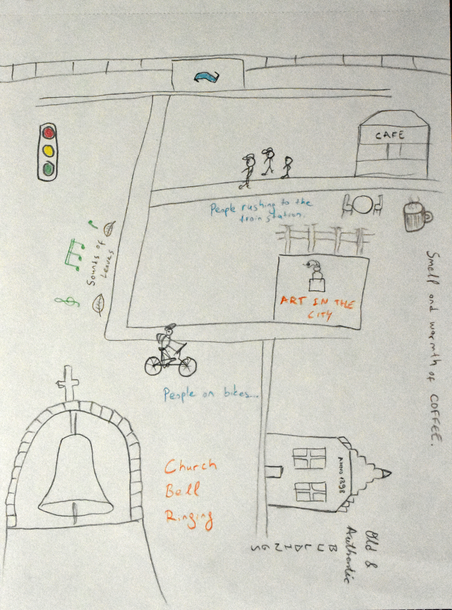 CAFE
People rushing to the
train station.
Sounds of
Leaves
Smell and warmth of COFFEE.
ART IN THE
CITY
People on bikes...
Church
Bell
Ringing
ANNO
Old &
Authentic
BUILDINGS